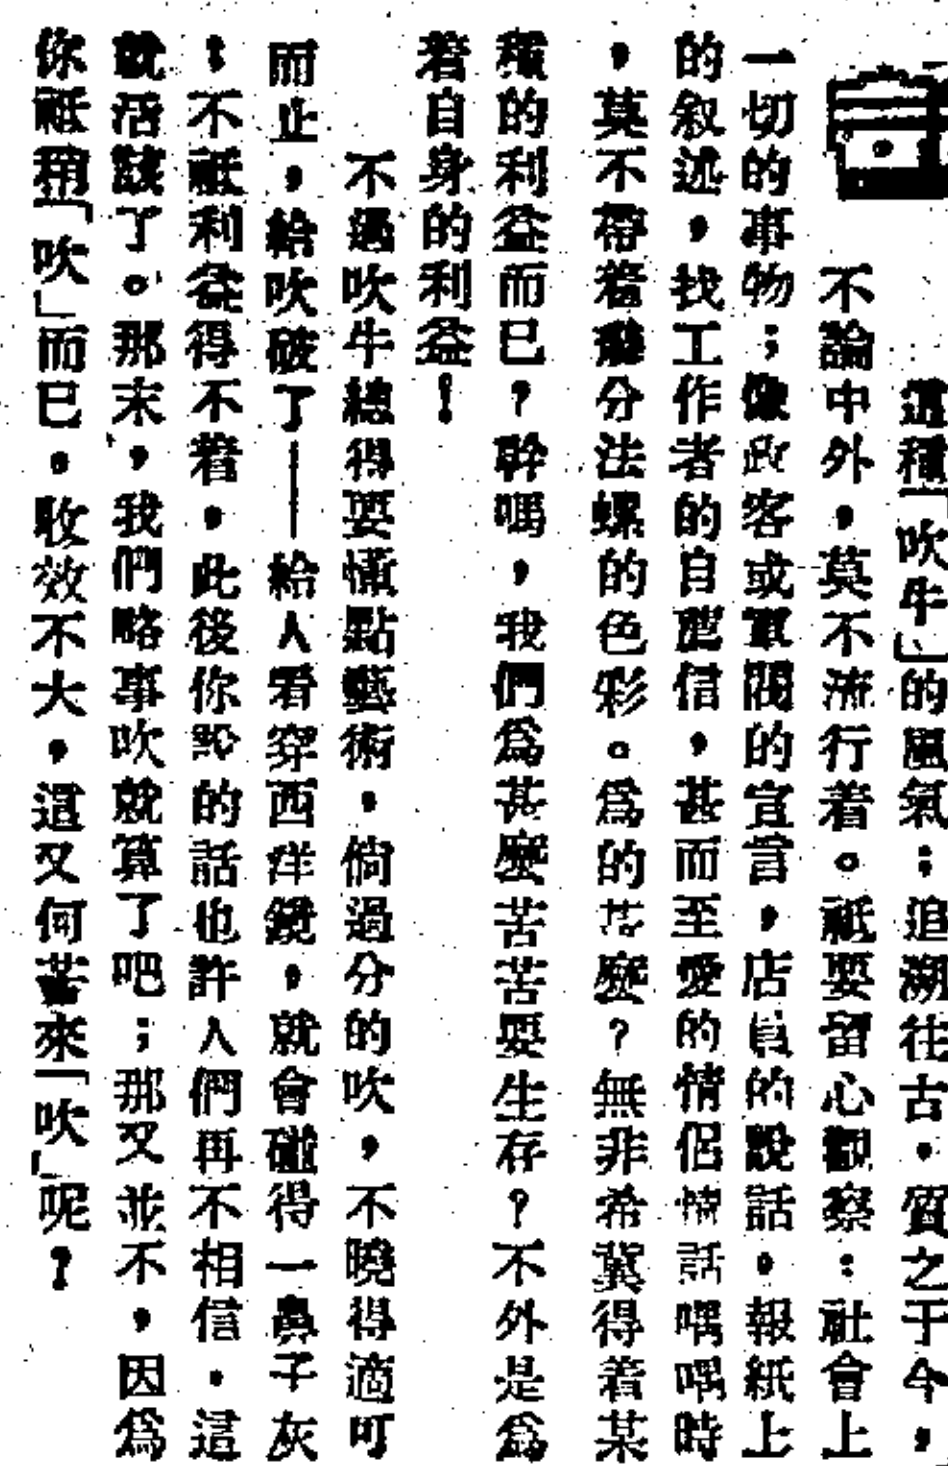 這種「吹牛」的風氣；追溯往古，質之于今，
不論中外，莫不流行着。祗要留心觀察：社會上
一切的事物；像政客或軍閥的宣言，店員的說話，報紙上
的叙述，找工作者的自薦信，甚而至愛的情侶情話喁喁時
，莫不帶着幾分法螺的色彩。爲的甚麼？無非希冀得着某
種的利益而已？幹嗎，我們爲甚麼苦苦要生存？不外是爲
着自身的利益！
不過吹牛總得要懂點藝術，倘過分的吹，不曉得適可
而止，給吹破了——給人看穿西洋鏡，就會碰得一鼻子灰
；不祗利益得不着，此後你的話也許人們再不相信，這
就活該了。那末，我們略事吹就算了吧；那又並不，因爲
你祗稍「吹」而已，收效不大，這又何苦來「吹」呢？